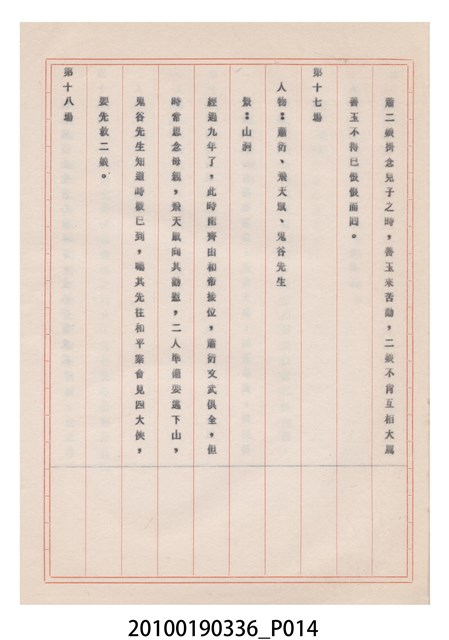 蕭二娘掛念兒子之時，善玉來苦勸，二娘不肯互相大罵
善玉不得已恨恨而回。
第十七場
人物：蕭衍、飛天鼠、鬼谷先生
景：山洞
經過九年了，此時南齊由和帝接位，蕭衍文武俱全，但
時常思念母親，飛天鼠向其勸慰，二人準備要逃下山，
鬼谷先生知道時機已到，囑其先往和平寨會見四大俠，
要先救二娘。
第十八場
20100190336_P014